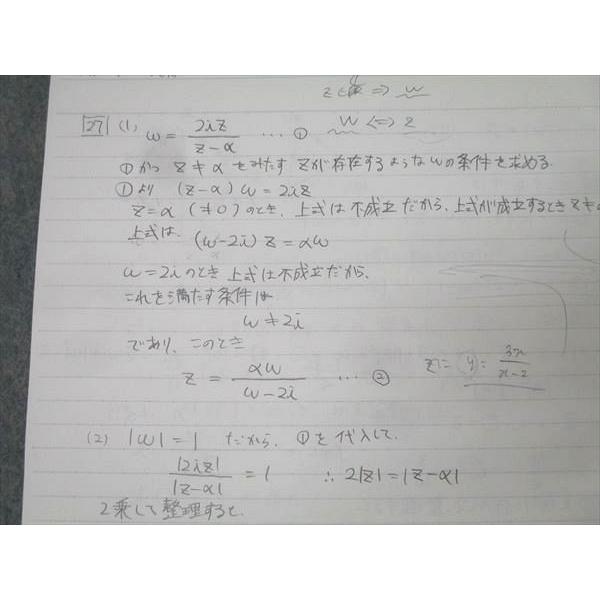 ⇒ w
[27] (1) w = 2iz / (z-α) … ① w ⇔ z
①かつ z≠α をみたす zが存在するようなwの条件を求める.
①より (z-α)w = 2iz
z=α (≠0) のとき、上式は不成立だから、上式が成立するとき z≠
上式は、 (w-2i)z = αw
w=2i のとき 上式は不成立だから、
これを満たす条件は
w≠2i
であり、このとき
z = αw / (w-2i) … ②
y = 3x / (x-2)
(2) |w|=1 だから、①を代入して、
|2iz| / |z-α| = 1 ∴ 2|z|=|z-α|
2乗して整理すると、